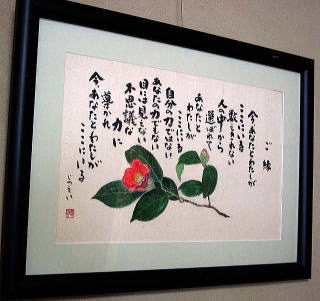 ご縁
今あなたとわたしが
ここにいる
数えきれない
人の中から
選ばれて
あなたと
わたしが
ここにいる
自分の力ではない
あなたの力でもない
目には見えない
不思議な
力に
導かれ
今あなたとわたしが
ここにいる